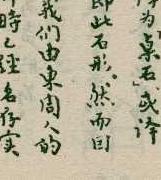 為「桌石」或譯
即此石形。然而回
我們由東周人的
時已經名存实